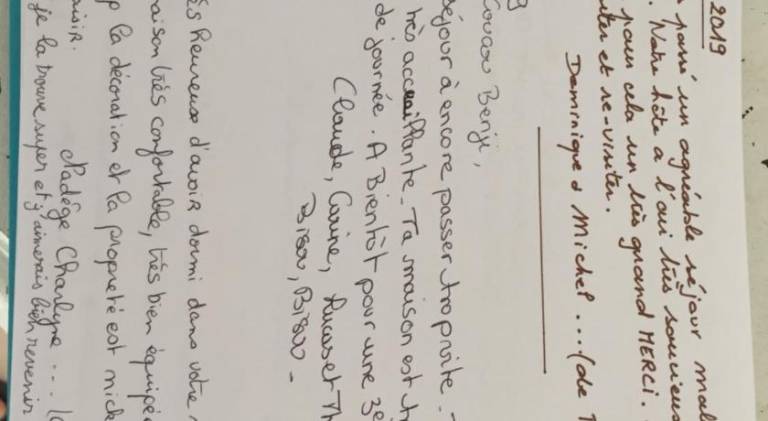 2019
passé un agréable séjour mal
. Notre hôte a l'oui très soucieux
pour cela un très grand MERCI.
et re-visiter.
Dominique & Michel...(de
9
Coucou Benji,
séjour à encore passer trop vite.
très accueillante. Ta maison est tr
de journée. A Bientôt pour une 3è
Claude, Carine, Lucas et Th
Bisou, Bisou -
ès heureuse d'avoir dormi dans votre
maison très confortable, très bien équipée
p la décoration et la propreté est nick
aisir.
Nadège Charlyne ... (
je la trouve super et j'aimerais bien revenir